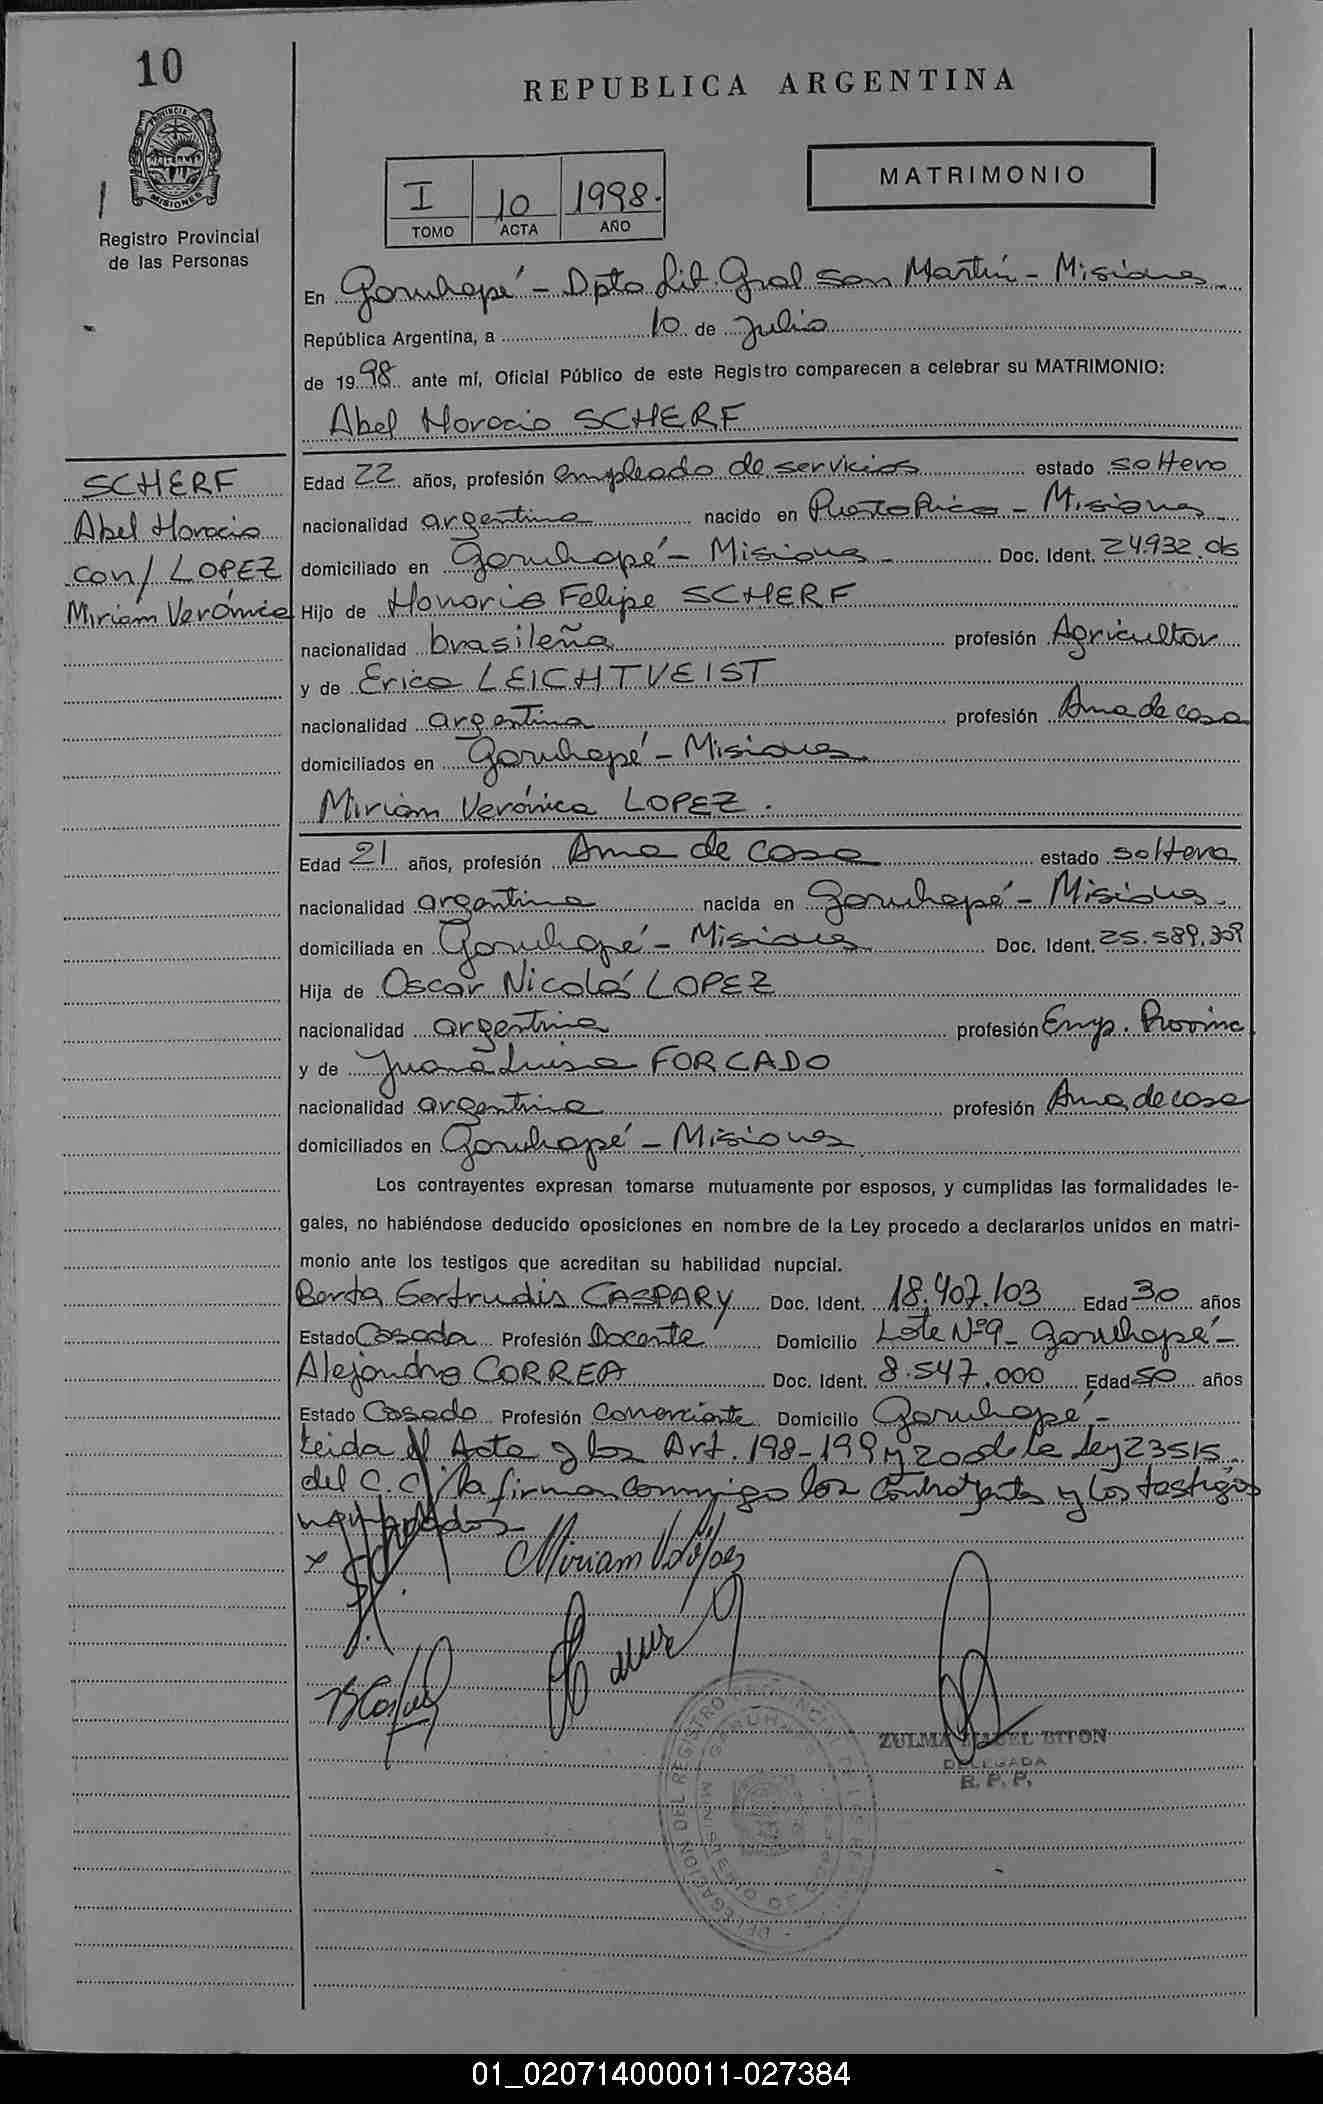 10
REPUBLICA ARGENTINA
PROVINCIA DE
MISIONES
Registro Provincial
de las Personas
I 10 1998.
TOMO ACTA AÑO
MATRIMONIO
En Garuhapé - Dpto Lib. Gral San Martín - Misiones
República Argentina, a 10 de Julio
de 1998 ante mí, Oficial Público de este Registro comparecen a celebrar su MATRIMONIO:
Abel Horacio SCHERF
SCHERF
Abel Horacio
con/ LOPEZ
Miriam Verónica
Edad 22 años, profesión empleado de servicios estado soltero
nacionalidad argentina nacido en Puerto Rico - Misiones
domiciliado en Garuhapé - Misiones Doc. Ident. 24.932.
Hijo de Honorio Felipe SCHERF
nacionalidad brasileña profesión Agricultor
y de Erica LEICHTVEIST
nacionalidad argentina profesión Ama de casa
domiciliados en Garuhapé - Misiones
Miriam Verónica LOPEZ.
Edad 21 años, profesión Ama de casa estado soltera
nacionalidad argentina nacida en Garuhapé - Misiones
domiciliada en Garuhapé - Misiones Doc. Ident. 25.589.359
Hija de Oscar Nicolás LOPEZ
nacionalidad argentina profesión Emp. Provinc
y de Juana Luisa FORCADO
nacionalidad argentina profesión Ama de casa
domiciliados en Garuhapé - Misiones
Los contrayentes expresan tomarse mutuamente por esposos, y cumplidas las formalidades le-
gales, no habiéndose deducido oposiciones en nombre de la Ley procedo a declararlos unidos en matri-
monio ante los testigos que acreditan su habilidad nupcial.
Berta Gertrudis CASPARY Doc. Ident. 18.407.103 Edad 30 años
Estado Casada Profesión Docente Domicilio Lote Nº9 - Garuhapé -
Alejandro CORREA Doc. Ident. 8.547.000 Edad 50 años
Estado Casado Profesión Comerciante Domicilio Garuhapé -
Leida el Acta y los Art. 198-199 y 200 de la Ley 23515
del C.C. la firman conmigo los contrayentes y los testigos
nombrados -
Miriam V. López
ZULMA ISABEL BITON
DELEGADA
R. P. P.
DELEGACION DEL REGISTRO PROVINCIAL DE LAS
GARUHAPE
MISIONES
01_020714000011-027384